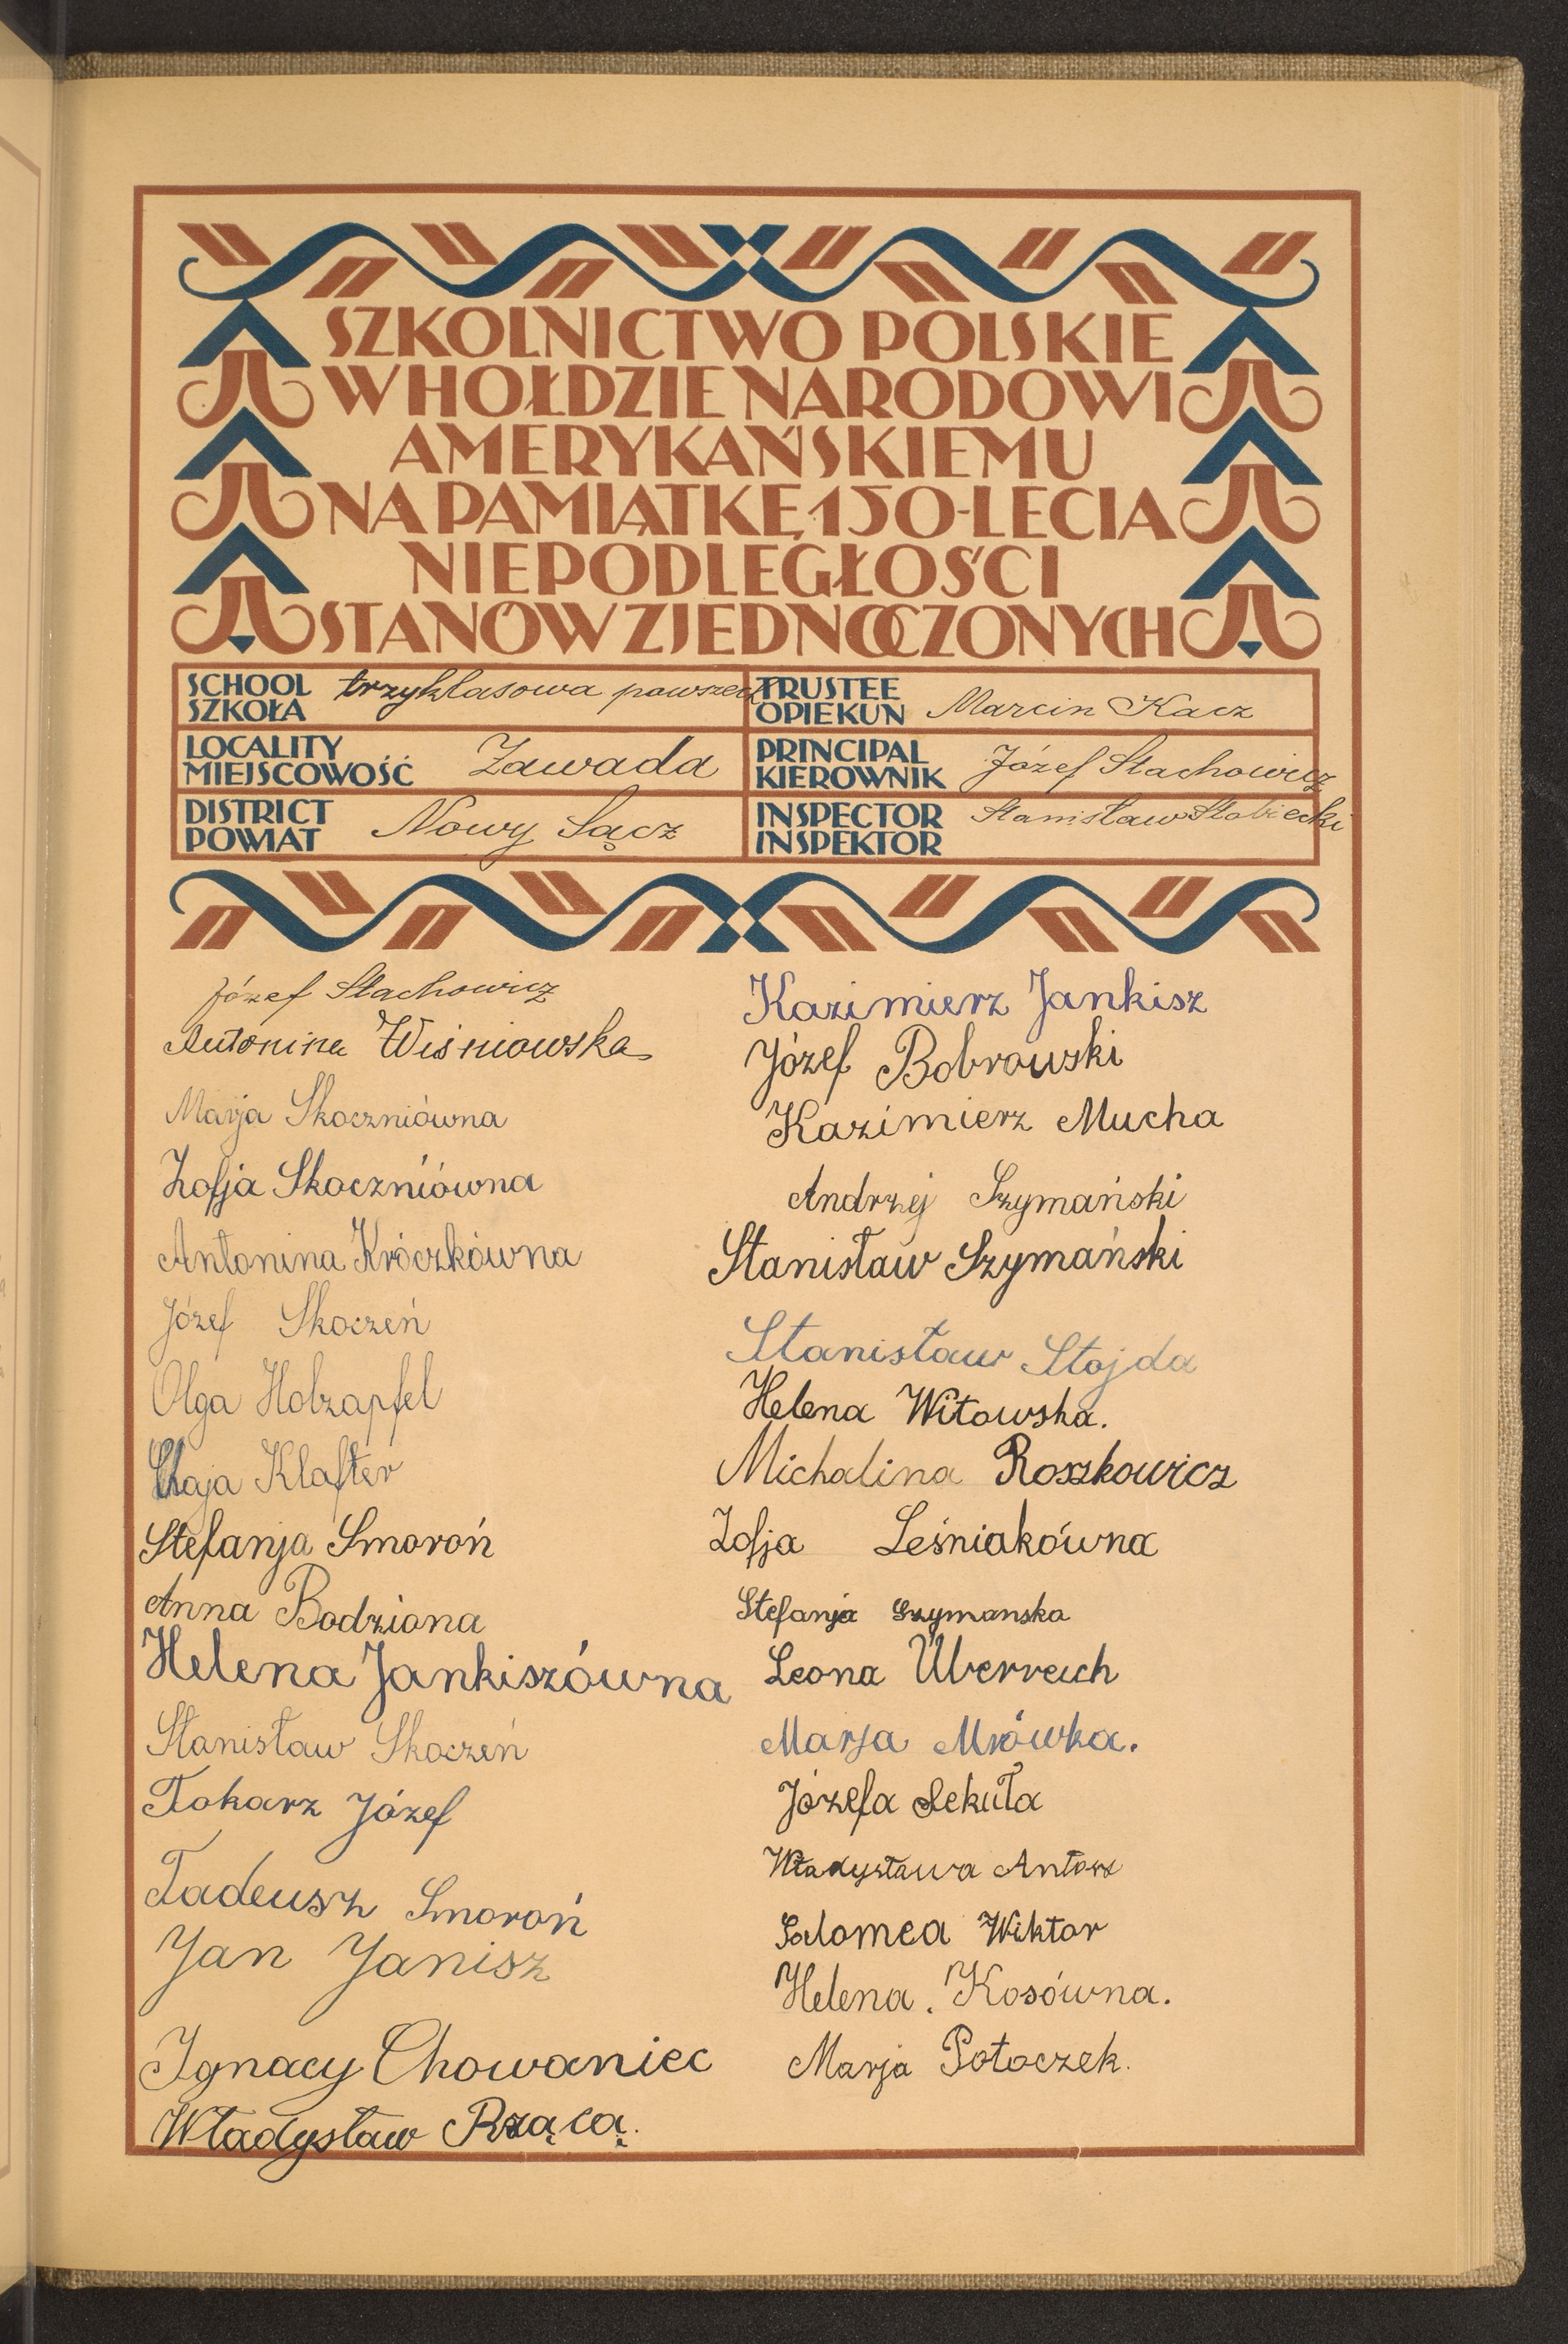 SZKOLNICTWO POLSKIE
W HOŁDZIE NARODOWI
AMERYKAŃSKIEMU
NA PAMIĄTKĘ 150-LECIA
NIEPODLEGŁOŚCI
STANÓW ZJEDNOCZONYCH
SCHOOL
SZKOŁA
trzyklasowa powszech
TRUSTEE
OPIEKUN
Marcin Kacz
LOCALITY
MIEJSCOWOŚĆ
Zawada
PRINCIPAL
KIEROWNIK
Józef Stachowicz
DISTRICT
POWIAT
Nowy Sącz
INSPECTOR
INSPEKTOR
Stanisław Słobiecki
Józef Stachowicz
Antonina Wiśniowska
Marja Skoczniówna
Zofja Skoczniówna
Antonina Króczkówna
Józef Skoczeń
Olga Holzapfel
Chaja Klafter
Stefanja Smoroń
Anna Bodziona
Helena Jankiszówna
Stanisław Skoczeń
Tokarz Józef
Tadeusz Smoroń
Jan Janisz
Ignacy Chowaniec
Władysław Rząca
Kazimierz Jankisz
Józef Bobrowski
Kazimierz Mucha
Andrzej Szymański
Stanisław Szymański
Stanisław Stojda
Helena Witowska.
Michalina Roszkowicz
Zofja Leśniakówna
Stefanja Szymanska
Leona Überreich
Marja Mrówka.
Józefa Sekuła
Władysława Antosz
Salomea Wiktor
Helena. Kosówna.
Marja Potoczek.